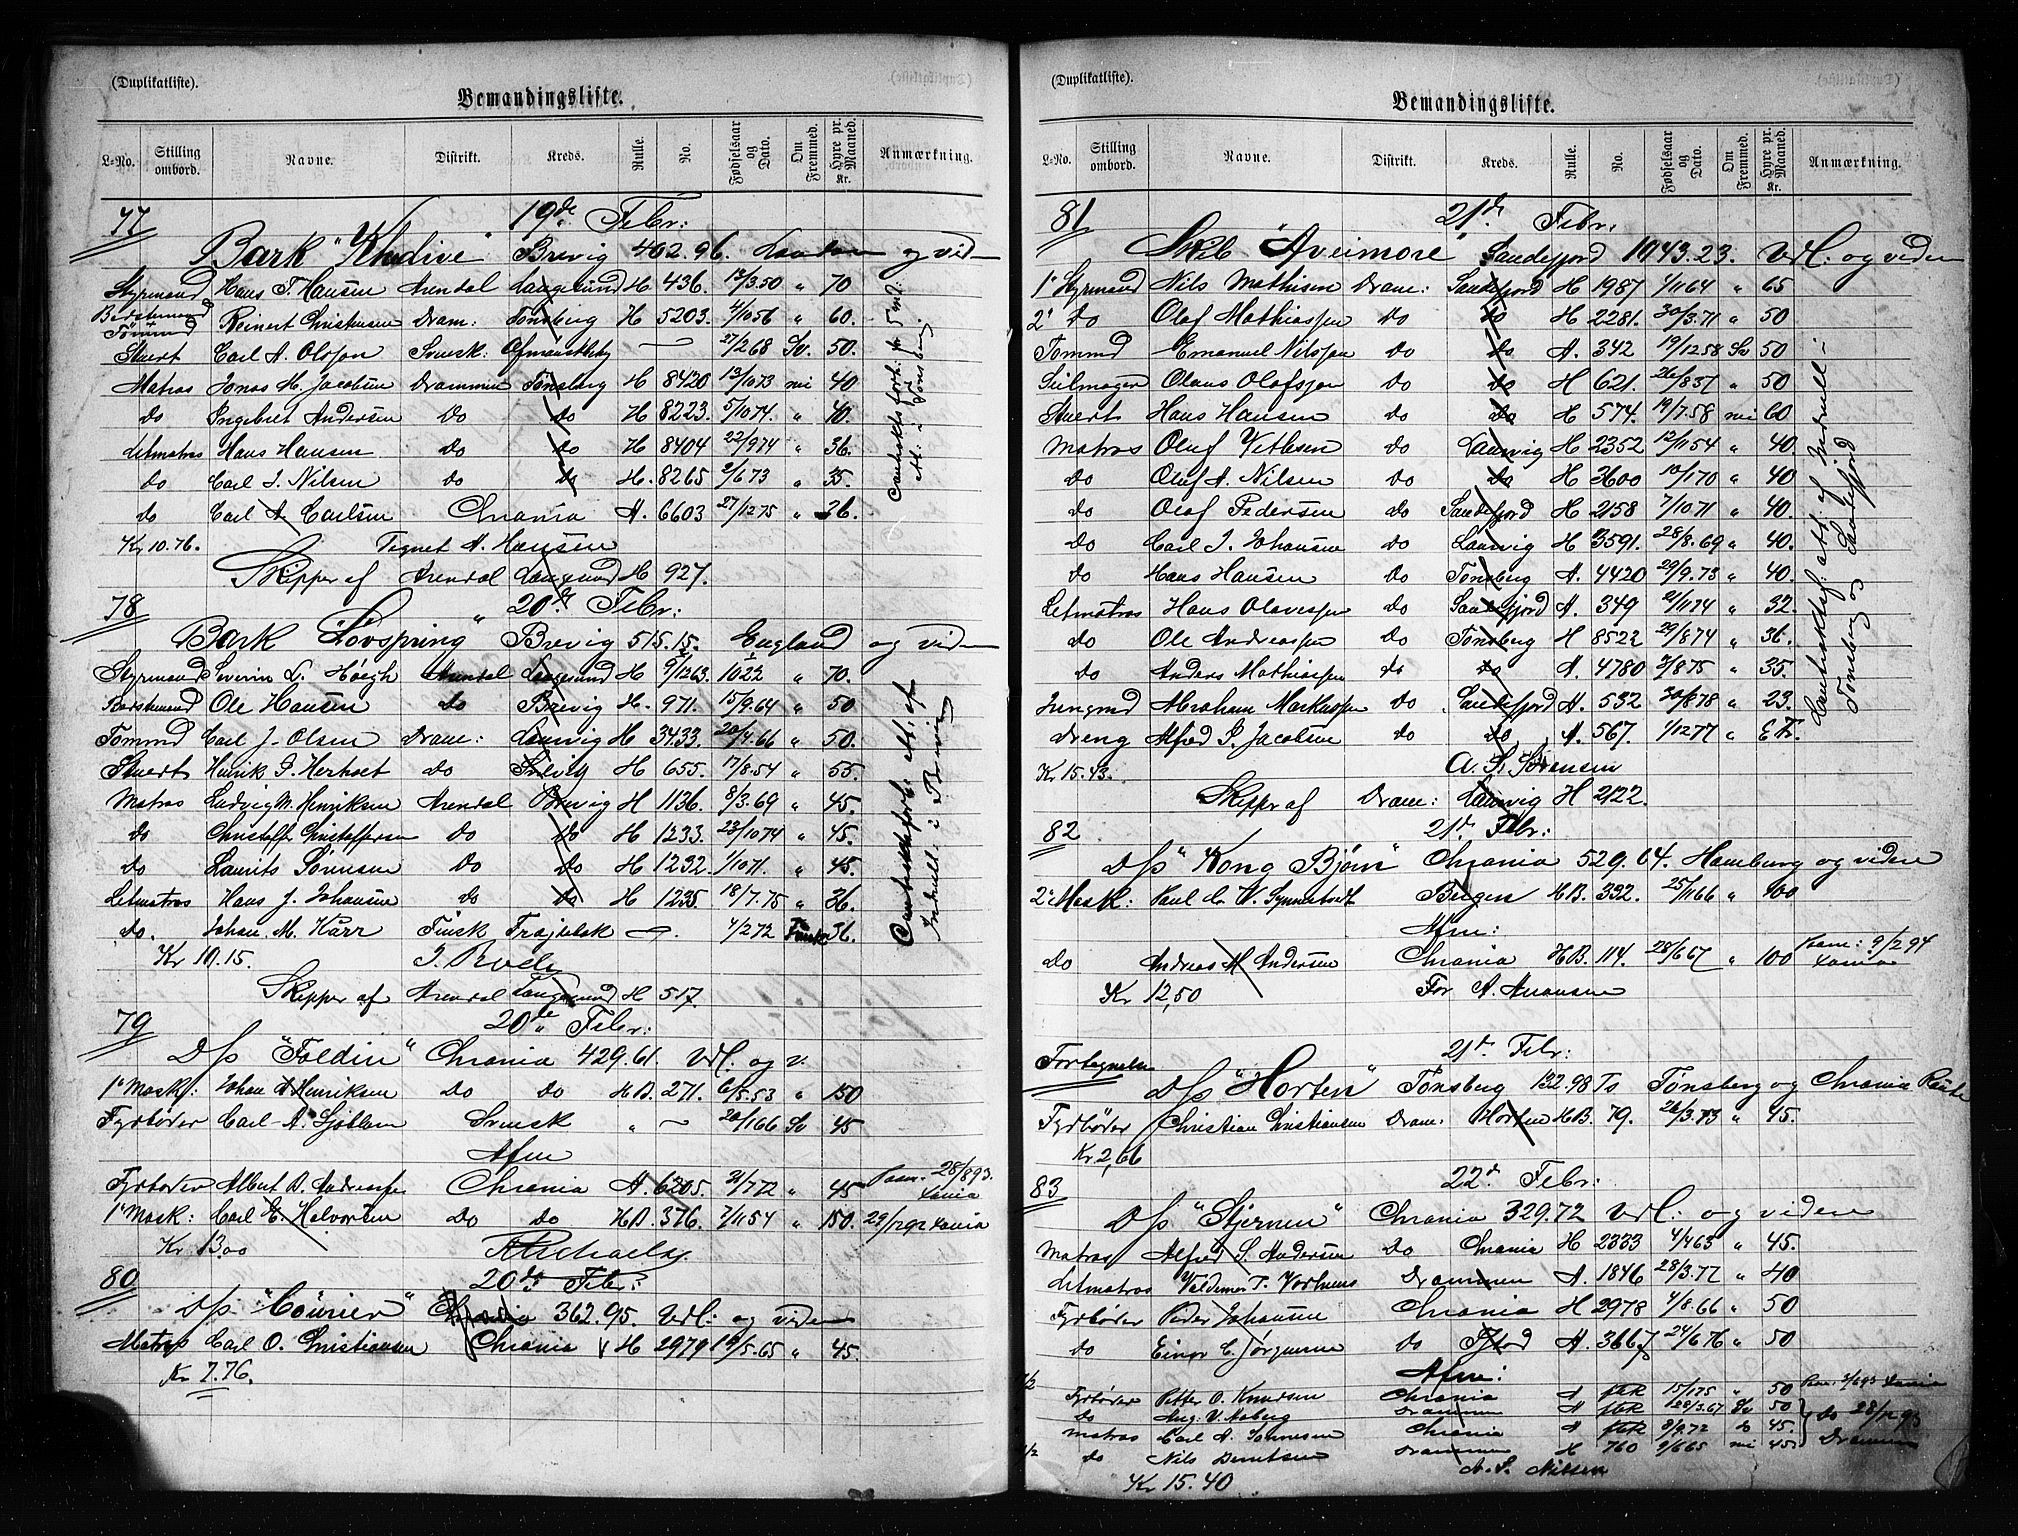 (Duplikatliste).
Bemandingsliste.
L-No. Stilling ombord. Navne. Distrikt. Kreds. Rulle. No. Fødselsaar og Dato. Om Fremmed. Hyre pr. Maaned. Kr. Anmærkning.
77 19de Febr:
Bark "Khedive" Brevig 402.96. London og vid
Styrmand Hans T. Hansen Arendal Langesund H 436. 17/3.50 " 70
Baadsmand Tømmd Reinert Christensen Dram: Tønsberg H 5203. 4/10 56 " 60.
Stuert Carl A. Olsson Svensk: 27/2 68 Sv. 50.
Matros Jonas M. Jacobsen Drammen Tønsberg H 8420 13/10 73 nei 40
do Ingebret Andersen Do do H 8223. 5/10 74. " 40.
Letmatros Hans Hansen Do do H 8404 22/9 74 " 36.
do Carl J. Nilsen do do H. 8265 2/6 73 " 35.
do Carl A. Carlsen Chrania A. 6603 27/12 75 " 36.
Kr 10.76. Tegnet H. Hansen
Skipper af Arendal Langesund H 927.
78 20de Febr:
Bark "Lovspring" Brevig 515.15. England og vid
Styrmand Severin L. Höegh Arendal Langesund H 9/12 63. 1022 " 70.
Baadsmand Ole Hansen do Brevig H. 971. 15/9.64 " 50
Tømmd Carl J. Olsen Dram: Laurvig H 3433. 20/4.66 " 50.
Stuert Henrik P. Herholt do Brevig H 655. 17/8.54 " 55.
Matros Ludvig M. Henriksen Arendal Brevig H 1136. 8/3.69 " 45.
do Christoffer Christoffersen do do H 1233. 23/10 74 " 45.
do Laurits Sørensen Do Do H 1232. 1/10 71. " 45
Letmatros Hans J. Johansen do do H 1235 18/7.75 " 36.
do. Johan. M. Karr Finsk 4/2 72 Finsk 36.
Kr 10.15.
Skipper af Arendal Langesund H 517.
79 20de Febr:
D/s "Foldin" Chrania 429.61. Vrl. og v.
1ste Mask: Johan A Henriksen Do Do H.B. 271. 6/5.53 " 150
Fyrbøder Carl A. Sjöblom Svensk " 20/1 66 Sv 45
Afm
Fyrbøder Albert B. Andreassen Chrania A. 6205. 31/7 72 " 45 28/8 93. Xania
1ste Mask: Carl E. Halvorsen Do Do H.B. 376. 7/11 54 " 150. 29/12 92 Xania
Kr 13.00
80 20de Febr:
D/s "Courier" 362.95. Vrl: og viden
Matros Carl O. Christiansen Chrania H 2979 19/5.65 " 45.
Kr 7.76.
(Duplikatliste).
Bemandingsliste.
L-No. Stilling ombord. Navne. Distrikt. Kreds. Rulle. No. Fødselsaar og Dato. Om Fremmed. Hyre pr. Maaned. Kr. Anmærkning.
81 21de Febr:
Skib "Aveimore" Sandefjord 1043.23. Vrl: og viden
1ste Styrmand Nils Mathisen Dram: Sandefjord H 1987 4/11 64 " 65
2den do Olaf Mathiassen do do H 2281. 30/3.71 " 50
Tømmd Emanuel Nilsson do do A. 342 19/12 58 Sv 50
Seilmager Olaus Olofsson do do H 621. 26/8 37 " 50
Stuert Hans Hansen do do H 574. 19/7.58 nei 60
Matros Oluf Vetlesen do Laurvig H 2352 12/11 54 " 40.
do Oluf A. Nilsen do do H 3600 10/1 70 " 40
do Olaf Pedersen do Sandefjord H 2158 7/10 71 " 40.
do Carl J. Johansen do Laurvig H 3591. 28/8.69 " 40.
do Hans Hansen do Tønsberg A. 4420 29/9.73 " 40.
Letmatros Hans Olavessen do Sandefjord A. 349 21/11 74 " 32.
do Ole Andreassen do Tønsberg H 8522 29/8.74 " 36.
do Anders Mathiassen do do A. 4780 3/8 75 " 35.
Jungmd Abraham Markussen Do Sandefjord A. 532 30/8 78 " 23.
Dreng Alfred S. Jacobsen do do A. 567. 1/12 77 "
Kr 15.43. A. S. Sørensen
Skipper af Dram: Laurvig H 2122.
82 21de Febr:
D/s "Kong Bjørn" Chrania 529.64. Hamburg og viden
2den Mask: Paul C. W. Synnestvedt Bergen H.B. 332. 25/11 66 " 100
Afm:
do Andreas M Andersen Chrania H.B. 114. 28/6 67 " 100 9/2 94 Xania
Kr 12,50 For A. Amonsen
21de Febr:
Fortegnelse
D/s "Horten" Tønsberg 132.98 Ts Tønsberg og Chrania Route
Fyrbøder Christian Christiansen Dram: Horten H.B. 79. 26/3.73 " 45.
Kr 2,66
83 22de Febr:
D/s "Stjernen" Chrania 329.72 Vrl: og viden
Matros Alfred S. Andersen Do Chrania H 2333 4/4 63 " 45.
Letmatros Valdemar T. Vorhens Drammen A. 1846 28/3.77 " 40
Fyrbøder Peder Johansen Chrania H 2978 4/8.66 " 50
do Einar E. Jørgensen do A. 3667 24/6 76 " 50
Afm:
Fyrbøder Petter O. Knudsen Chrania A 15/1 75 " 50
do Aug. V. Moberg Drammen A 28/3.67 Sv 50
Matros Carl A. Sørensen Chrania A 8/9.72 do 45. do 28/12 93
do Nils Berntsen Drammen H 760 9/6 65 nei 45 Drammen
Kr 15.40 A. S. Nilsen